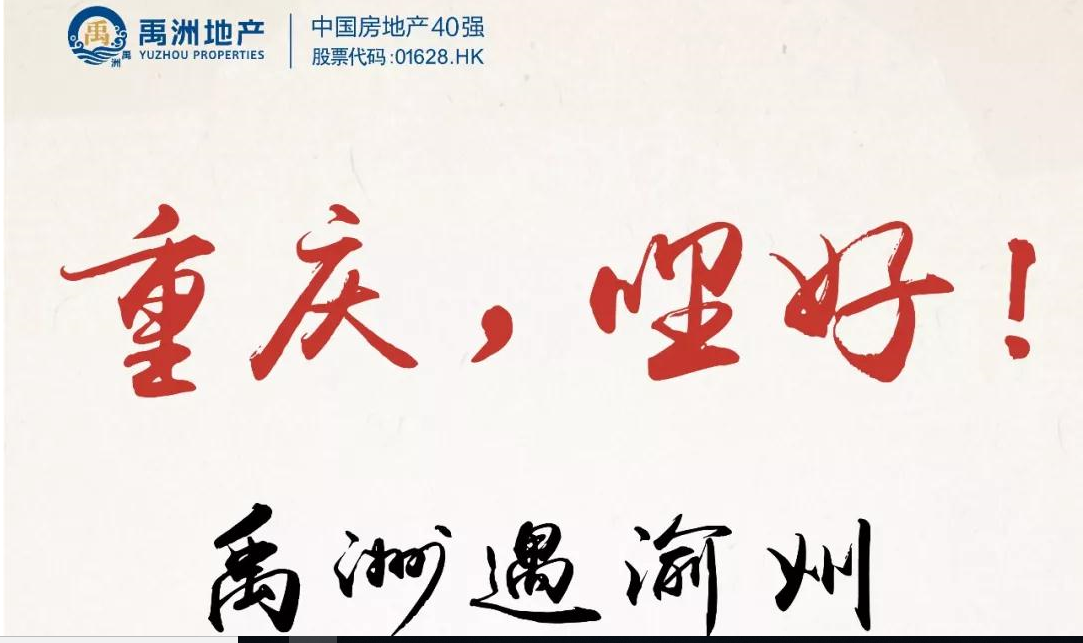 禹洲地产
YUZHOU PROPERTIES
禹洲
中国房地产40强
股票代码:01628.HK
重庆，哩好！
禹洲遇渝州